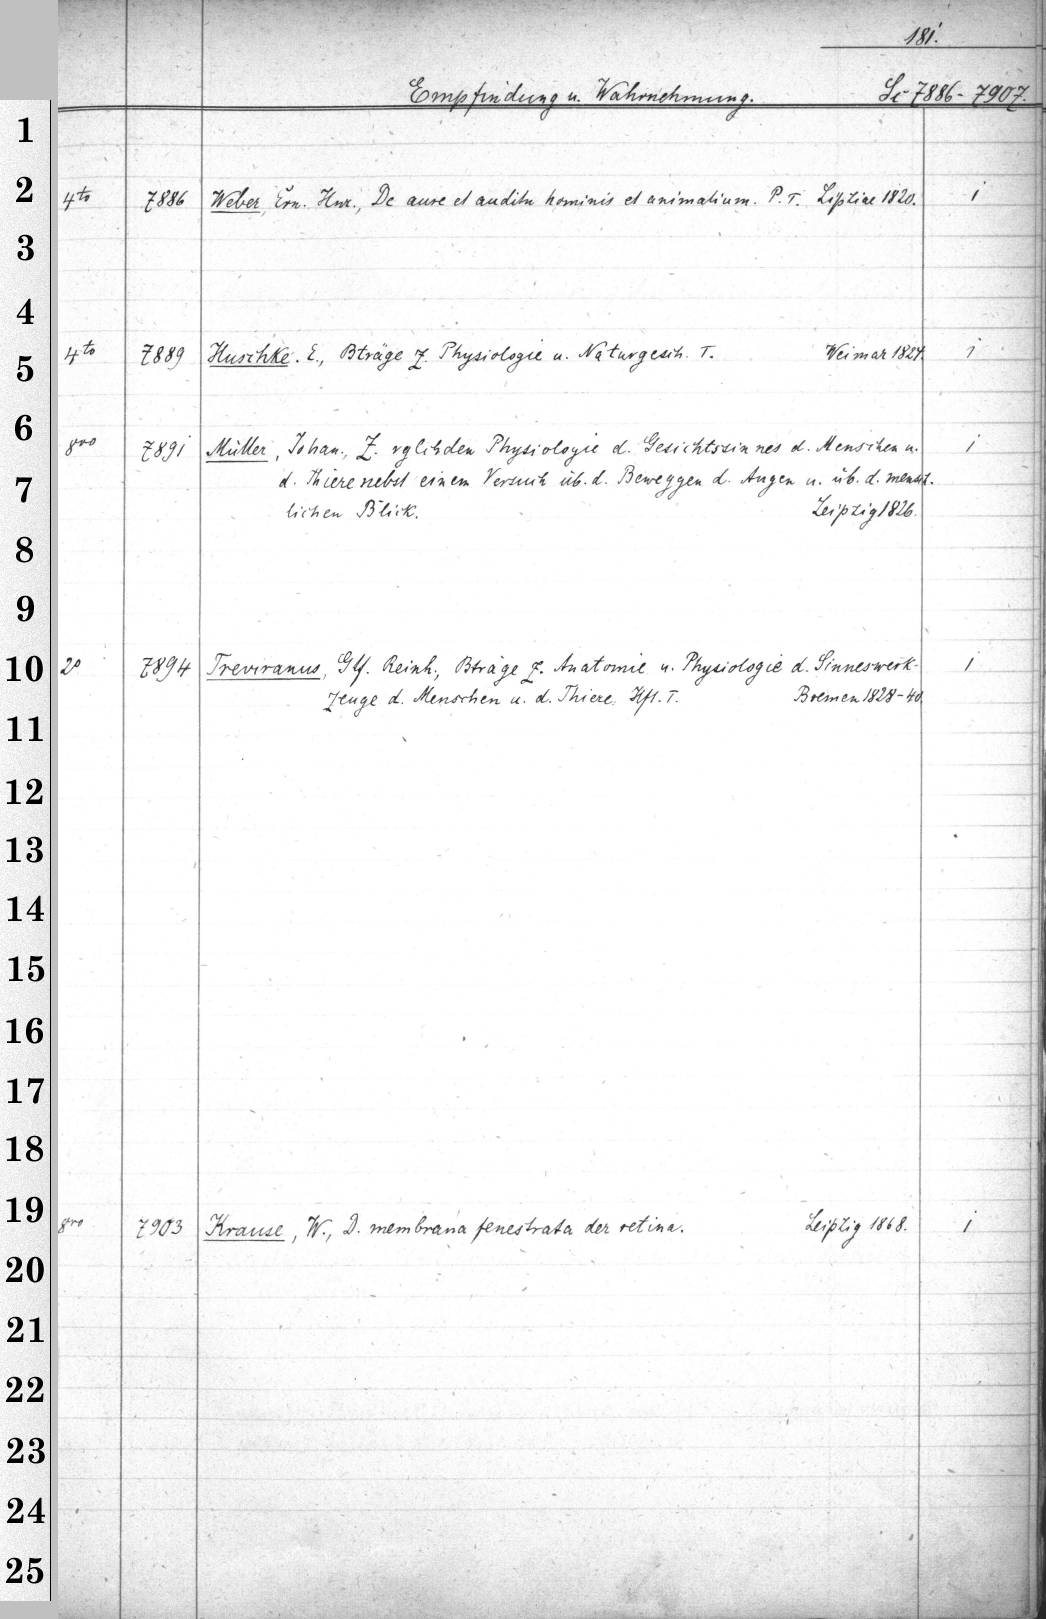 181.
Empfindung u. Wahrnehmung. Lc 7886 - 7907.
1
2
4to 7886 Weber, Ern. Hnr., De aure et auditu hominis et animalium. P. I. Lipsiae 1820. 1
3
4
4to 7889 Huschke. E., Bträge z. Physiologie u. Naturgesch. I. Weimar 1824. 1
5
6
8vo 7891 Müller, Johan., Z. vglchden Physiologie d. Gesichtssinnes d. Menschen u. 1
7
d. Thiere nebst einem Versuch üb. d. Beweggen d. Augen u. üb. d. mensch.
lichen Blick. Leipzig 1826.
8
9
10
2o 7894 Treviranus, Glf. Reinh., Bträge z. Anatomie u. Physiologie d. Sinneswerk- 1
zeuge d. Menschen u. d. Thiere, Hft. I. Bremen 1828-40.
11
12
13
14
15
16
17
18
19
8vo 7903 Krause, W., D. membrana fenestrata der retina. Leipzig 1868. 1
20
21
22
23
24
25